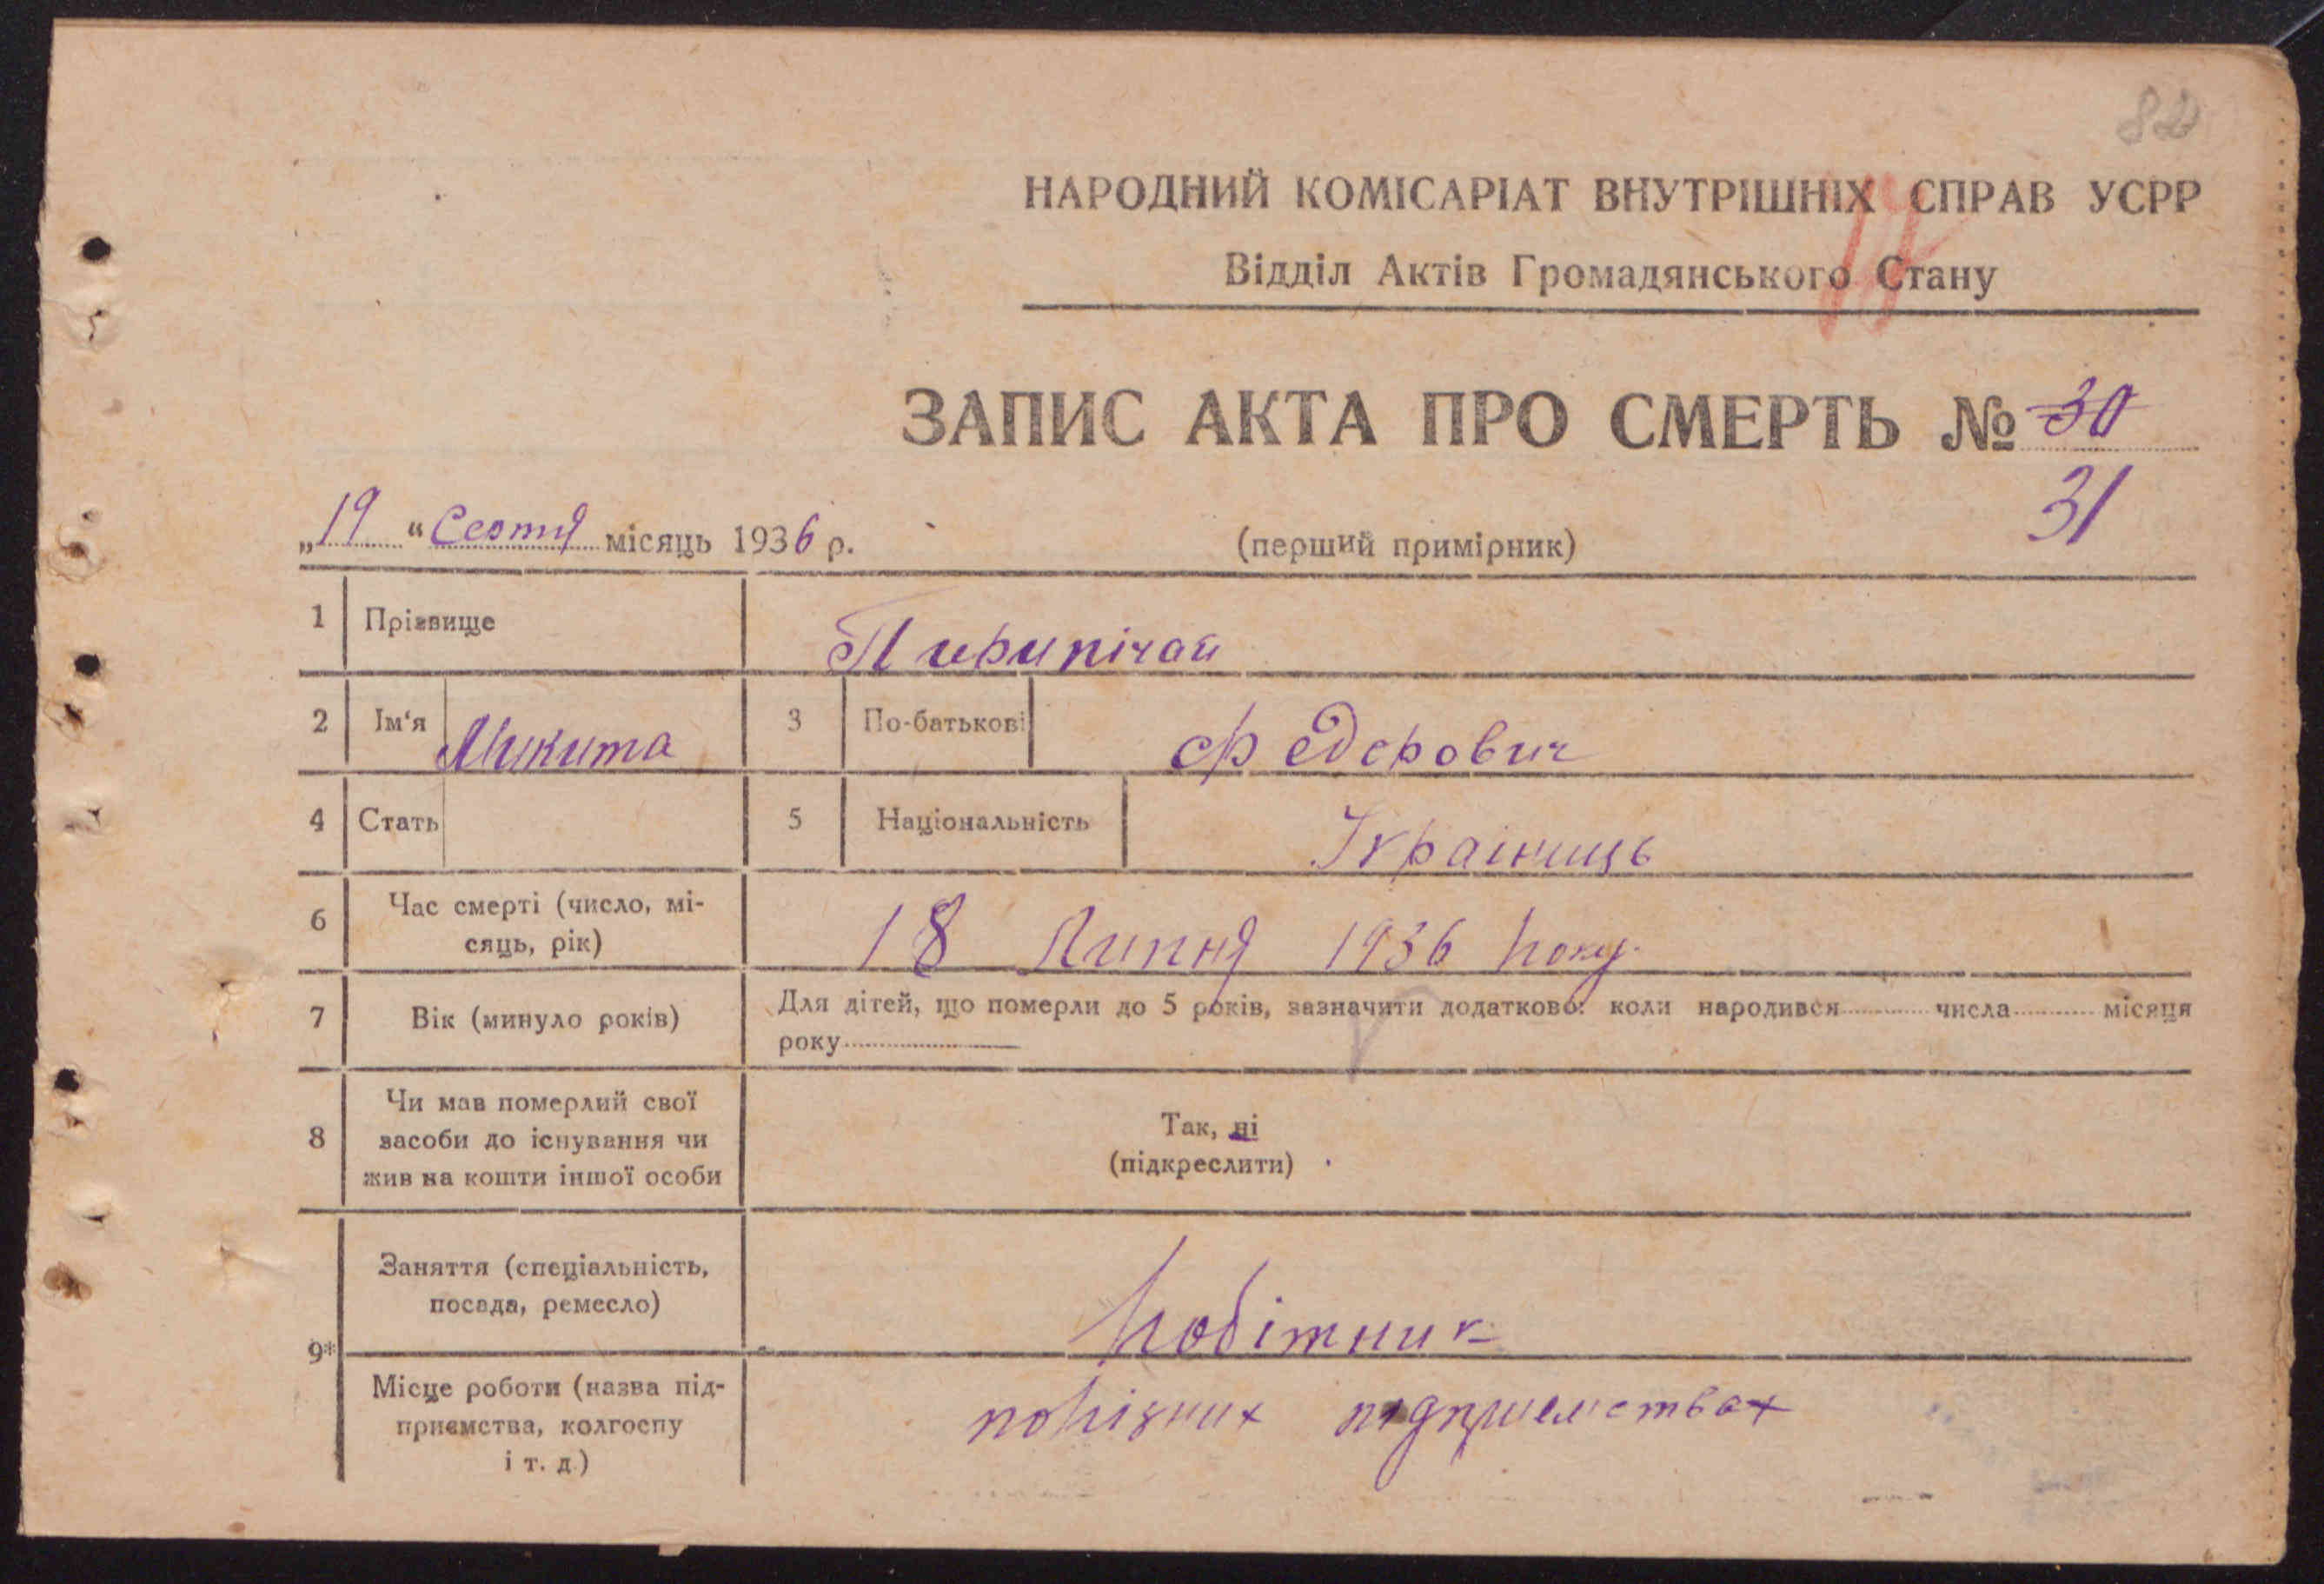 82
НАРОДНИЙ КОМІСАРІАТ ВНУТРІШНІХ СПРАВ УСРР
Відділ Актів Громадянського Стану
ЗАПИС АКТА ПРО СМЕРТЬ № 30
31
„19“ місяць 1936 р. (перший примірник)
1 Прізвище Пирипічай
2 Ім'я Микита 3 По-батькові Федорович
4 Стать 5 Національність Українець
6 Час смерті (число, мі-
сяць, рік) 18 Липня 1936 Року
7 Вік (минуло років) Для дітей, що померли до 5 років, зазначити додатково: коли народився числа місяця
року
8 Чи мав померлий свої
засоби до існування чи
жив на кошти іншої особи
Так, ні
(підкреслити)
9*
Заняття (спеціальність,
посада, ремесло) Робітник
Місце роботи (назва під-
приємства, колгоспу
і т. д.)
порізних підприемствах